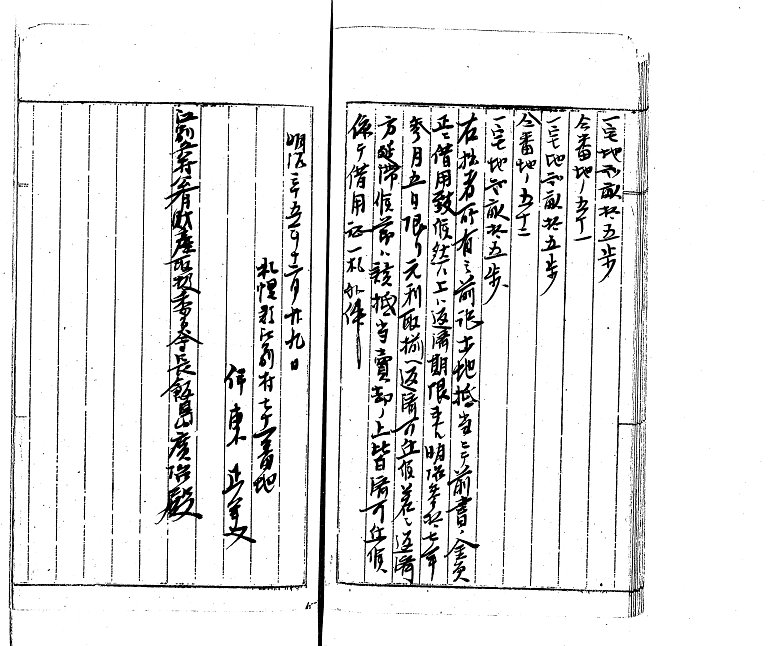 一宅地弐畝拾五歩
仝番地ノ五十一
一宅地弐畝拾五歩
仝番地ノ五十二
一宅地弐畝拾五歩
右拙者所有之前記土地抵当ニテ前書ノ金員
正ニ借用致候然ル上ハ返済期限来ル明治参拾七年
参月五日限リ元利取揃ヘ返済可仕候若シ返済
方延滞候節ハ該抵当賣却ノ上皆済可仕候
依テ借用証一札如件
明治三十五年十二月廿九日
札幌郡江別村七十一番地
伊東正美
江別 財産 委員会長飯島廣治殿